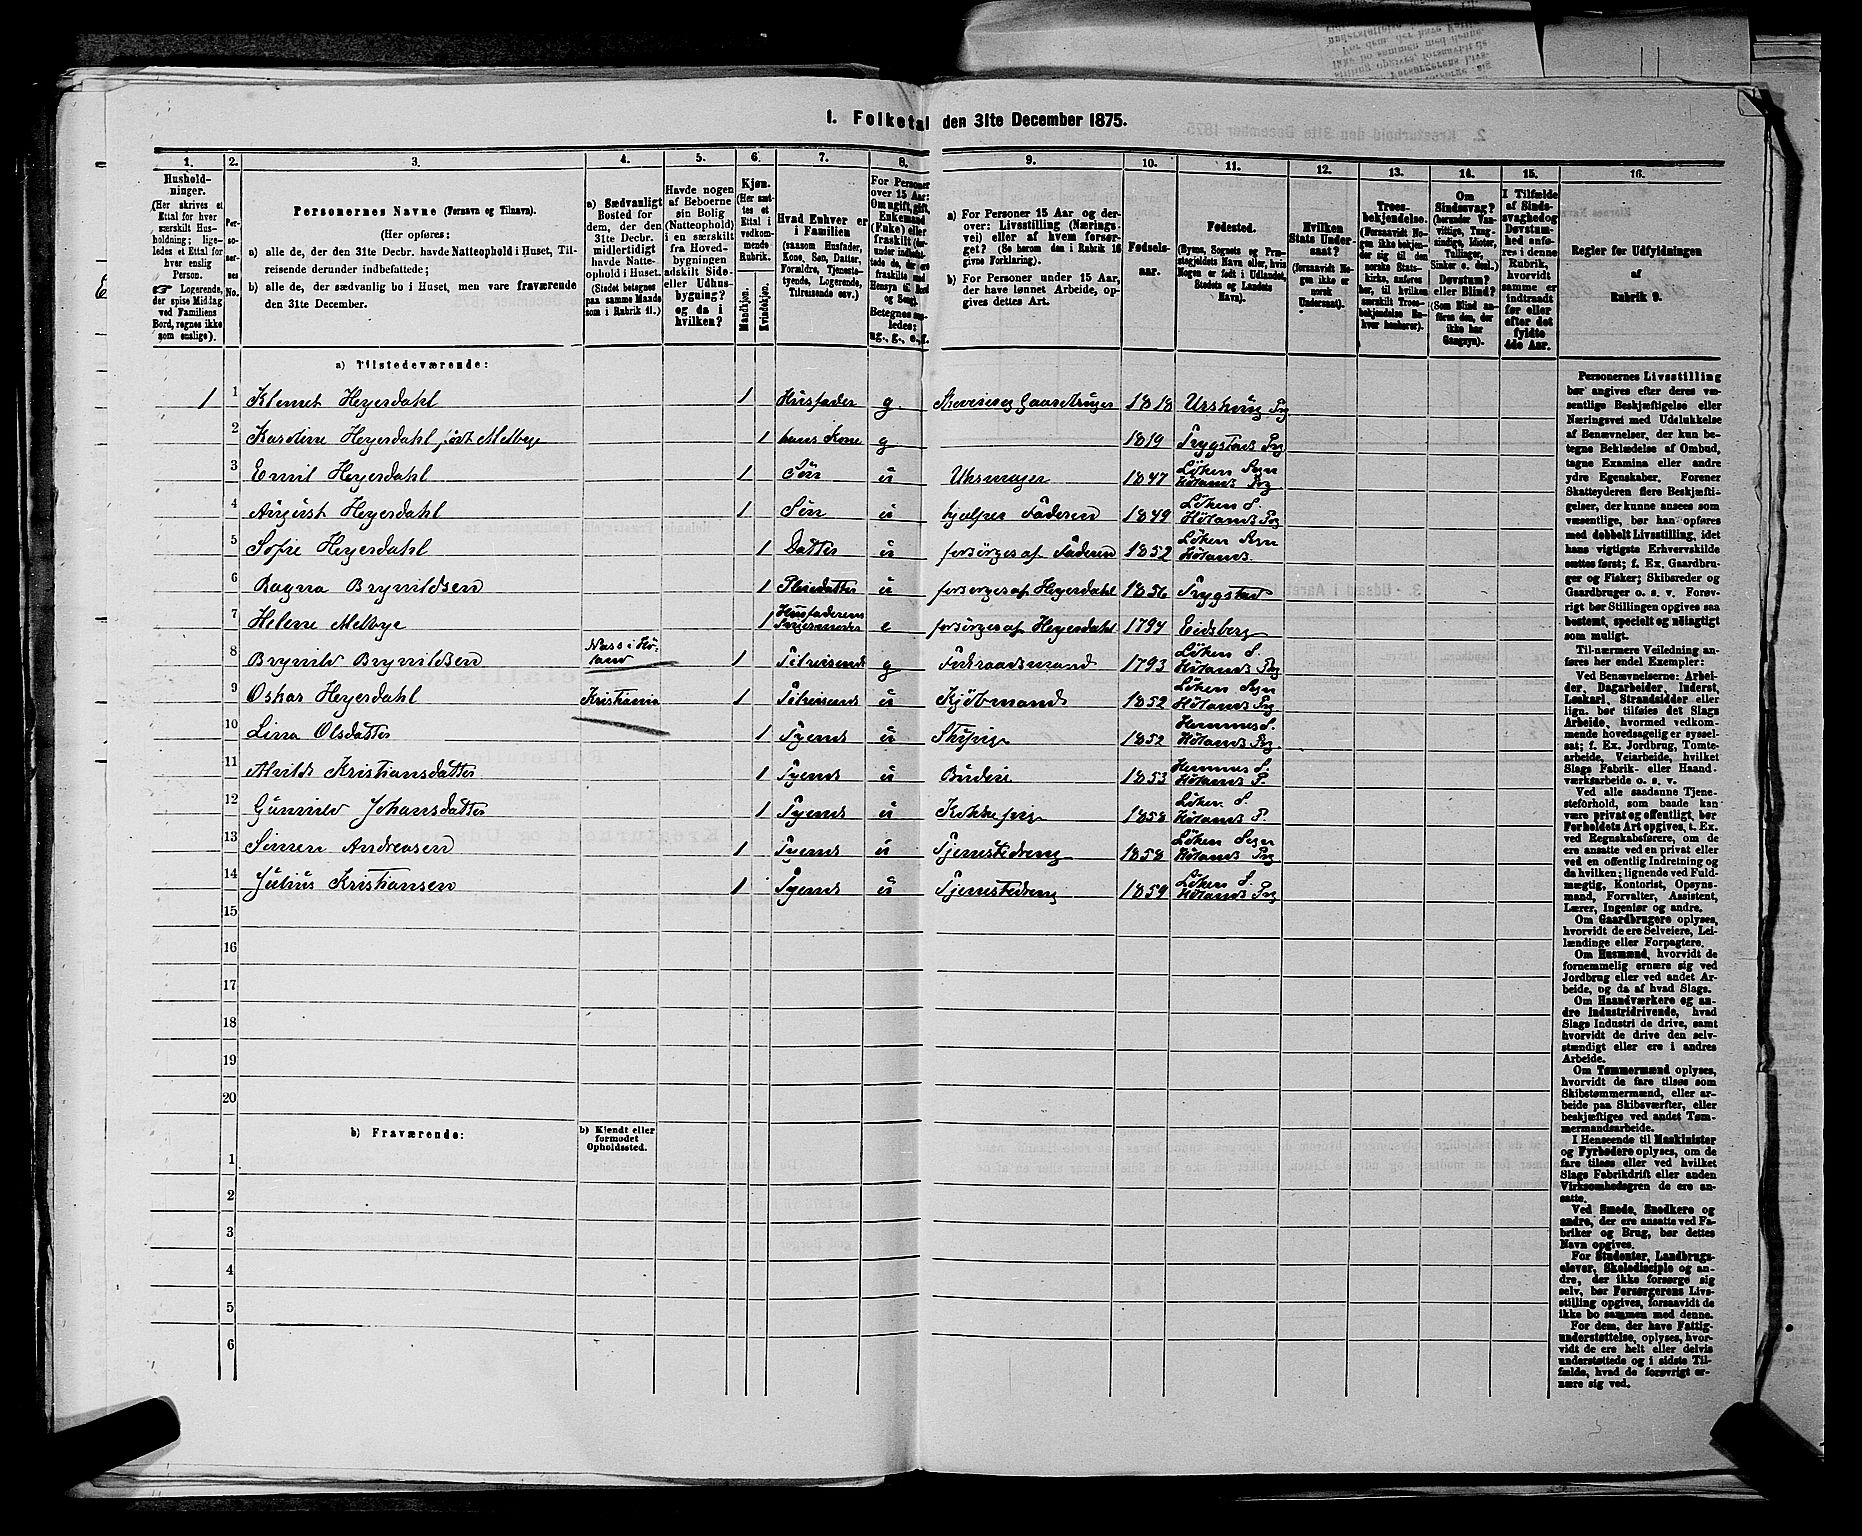 1. Folketal den 31te December 1875.
1.
Hushold-
ninger.
(Her skrives et
Ettal for hver
særskilt Hus-
holdning; lige-
ledes et Ettal for
hver enslig
Person.
☞ Logerende,
der spise Middag
ved Familiens
Bord, regnes ikke
som enslige).
2.
Per-
so-
ner-
nes
No.
3.
Personernes Navne (Fornavn og Tilnavn).
(Her opføres:
a) alle de, der den 31te Decbr. havde Natteophold i Huset, Til-
reisende derunder indbefattede;
b) alle de, der sædvanlig bo i Huset, men vare fraværende
den 31te December.
4.
a) Sædvanligt
Bosted for
dem, der den
31te Decbr.
midlertidigt
havde Natte-
ophold i Huset.
(Stedet betegnes
paa samme Maade
som i Rubrik 11.)
5.
Havde nogen
af Beboerne
sin Bolig
(Natteophold)
i en særskilt
fra Hoved-
bygningen
adskilt Side-
eller Udhus-
bygning?
og da i
hvilken?
6.
Kjøn.
(Her sæt-
tes et
Ettal i
vedkom-
mende
Rubrik.
Mandkjøn.
Kvindekjøn.
7.
Hvad Enhver er
i Familien
(saasom Husfader,
Kone, Søn, Datter,
Forældre, Tjeneste-
tyende, Logerende,
Tilreisende osv.)
8.
For Personer
over 15 Aar:
Om ugift, gift,
Enkemand
(Enke) eller
fraskilt
Betegnes saa-
ledes:
ug., g., e., f.
9.
a) For Personer 15 Aar og der-
over: Livsstilling (Nærings-
vei) eller af hvem forsør-
get? (Se herom den i Rubrik 16
givne Forklaring).
b) For Personer under 15 Aar,
der have lønnet Arbeide, op-
gives dettes Art.
10.
Fødsels-
aar.
11.
Fødested.
(Byens, Sognets og Præ-
stegjeldets Navn eller, hvis
Nogen er født i Udlandet,
Stedets og Landets
Navn).
12.
Hvilken
Stats Under-
saat?
(forsaavidt No-
gen ikke er
norsk
Undersaat).
13.
Troes-
bekjendelse.
(Forsaavidt No-
gen ikke bekjen-
der sig til den
norske Stats-
kirke, anføres
her, til hvilken
særskilt Troes-
bekjendelse En-
hver henhører).
14.
Om
Sindssvag?
(herunder Van-
vittige, Tung-
sindige, Idioter,
Tullinger,
Sinker o. desl.)
Døvstum?
eller Blind?
(Som Blind an-
føres den, der
ikke har
Gangsyn).
15.
I Tilfælde
af Sinds-
svaghed og
Døvstum-
hed anfø-
res i denne
Rubrik,
hvorvidt
samme er
indtraadt
før eller
efter det
fyldte
4de Aar.
16.
Regler for Udfyldningen
af
Rubrik 9.
a) Tilstedeværende:
1 1 Klemet Heyerdahl 1 Husfader g. 1818 Urskoug Prg
2 Karoline Heyerdahl født Melbye 1 hans Kone g 1819 Trygstads Prg
3 Emil Heyerdahl 1 Søn u Uhrmager 1847 Löken Sogn Hölands Prg
4 August Heyerdahl 1 Søn u hjælper Faderen 1849 Löken S. Hölands Prg
5 Sofie Heyerdahl 1 Datter u forsørges af Faderen 1852 Löken Sogn Hölands.
6 Ragna Brynildsen 1 Pleiedatter u forsørges af Heyerdahl 1856 Trygstad
7 Helene Melbye 1 Husfaderens Svigermoder e forsørges af Heyerdahl 1794 Eidsberg
8 Brynild Brynildsen Næss i Hö-land 1 Tilreisende g Föderaadsmand 1793 Löken S. Hölands Prg
9 Oskar Heyerdahl Kristiania 1 Tilreisende u Kjöbmand 1852 Löken Sogn Hölands Prg
10 Lina Olsdatter 1 Tyende u 1852 Hemnes S. Hölands Prg.
11 Alvilde Kristiansdatter 1 Tyende u Budeie 1853 Hemnes S. Hölands P.
12 Gunnild Johansdatter 1 Tyende u Kokkepige 1858 Löken S. Hölands P.
13 Simen Andreasen 1 Tyende u Tjenestedreng 1858 Löken Sogn Hölands Prg
14 Julius Kristiansen 1 Tyende u Tjenestedreng 1859 Löken S. Hölands Prg
15
16
17
18
19
20
b) Fraværende:
b) Kjendt eller
formodet
Opholdssted.
1
2
3
4
5
6
Personernes Livsstilling
bør angives efter deres væ-
sentlige Beskjæftigelse eller
Næringsvei med Udelukkelse
af Benævnelser, der kun be-
tegne Beklædelse af Ombud,
tagne Examina eller andre
ydre Egenskaber. Forener
Skatteyderen flere Beskjæfti-
gelser, der kunne ansees som
væsentlige, bør han opføres
med dobbelt Livsstilling, idet
hans vigtigste Erhvervskilde
sættes først; f. Ex. Gaardbru-
ger og Fisker; Skibsreder og
Gaardbruger o. s. v. Forøv-
rigt bør Stillingen opgives saa
bestemt, specielt og nøiagtigt
som muligt.
Til nærmere Veiledning an-
føres her endel Exempler:
Ved Benævnelserne: Arbei-
der, Dagarbeider, Inderst,
Løskarl, Strandsidder eller
lign. bør tilføies det Slags
Arbeide, hvormed vedkom-
mende hovedsagelig er syssel-
sat; f. Ex. Jordbrug, Tomte-
arbeide, Veiarbeide, hvilket
Slags Fabrik- eller Haand-
værksarbeide o. s. v.
Ved alle saadanne Tjene-
steforhold, som baade kan
være privat og offentligt, bør
Forholdets Art opgives, t. Ex.
ved Regnskabsførere, om de
ere ansatte ved en privat eller
ved en offentlig Indretning og
da hvilken; lignende ved Fuld-
mægtig, Kontorist, Opsyns-
mand, Forvalter, Assistent,
Lærer, Ingeniør og andre.
Om Gaardbrugere oplyses,
hvorvidt de ere Selveiere, Lei-
lændinge eller Forpagtere.
Om Husmænd, hvorvidt de
fornemmelig ernære sig ved
Jordbrug eller ved andet Ar-
beide, og da af hvad Slags.
Om Haandværkere og an-
dre Industridrivende, hvad
Slags Industri de drive, samt
hvorvidt de drive den selv-
stændigt eller ere i andres
Arbeide.
Om Tømmermænd oplyses,
hvorvidt de fare tilsøs som
Skibstømmermænd, eller ar-
beide paa Skibsværfter, eller
beskjæftiges ved andet Tøm-
mermandsarbeide.
I Henseende til Maskinister
og Fyrbødere oplyses, om de
fare tilsøs eller ved hvilket
Slags Fabrikdrift eller anden
Virksomhedsgren de ere an-
satte.
Ved Smede, Snedkere og
andre, der ere ansatte ved Fa-
briker og Brug, bør dettes
Navn opgives.
For Studenter, Landbrugs-
elever, Skoledisciple og an-
dre, der ikke forsørge sig
selv, bør Forsørgerens Livs-
stilling opgives, forsaavidt de
ikke bo sammen med denne.
For dem, der have Fattig-
understøttelse, oplyses, hvor-
vidt de ere helt eller delvis
understøttede og i sidste Til-
fælde, hvad de forøvrigt er-
nære sig ved.